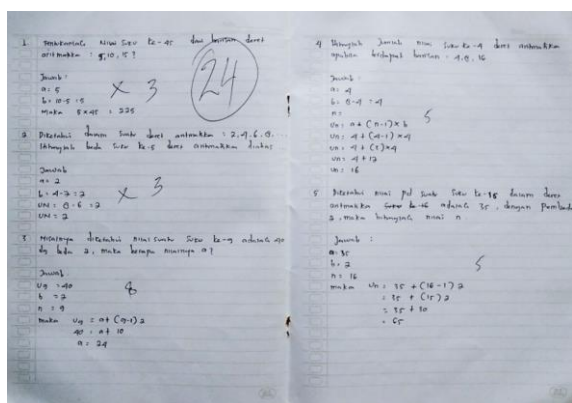 1. Tentukanlah nilai suku ke-45 dari barisan deret
aritmatika : 5,10,15 ?
Jawab :
a = 5
b = 10-5 = 5
maka 5 x 45 = 225
x 3
24
2. Diketahui dalam suatu deret aritmatika = 2,4,6,8,...
Hitunglah beda suku ke-5 deret aritmatika diatas
Jawab
a = 2
b = 4-2 = 2
UN = 8-6 = 2
UN = 2
x 3
3. Misalnya diketahui nilai suatu suku ke-9 adalah 40
dg beda 2, maka berapa nilainya a ?
Jawab
U9 = 40
b = 2
n = 9
maka U9 = a + (9-1) 2
40 = a + 18
a = 24
8
4. Hitunglah jumlah nilai suku ke-4 deret aritmatika
apabila terdapat barisan : 4,8,16
Jawab :
a = 4
b = 8-4 = 4
n =
Un = a + (n-1) x b
Un = 4 + (4-1) x 4
Un = 4 + (3) x 4
Un = 4 + 12
Un = 16
5
5. Diketahui nilai suatu suku ke-16 dalam deret
aritmatika adalah 35, dengan Pembeda
2, maka hitunglah nilai n
Jawab :
a = 35
b = 2
n = 16
maka Un = 35 + (16-1) 2
= 35 + (15) 2
= 35 + 30
= 65
5